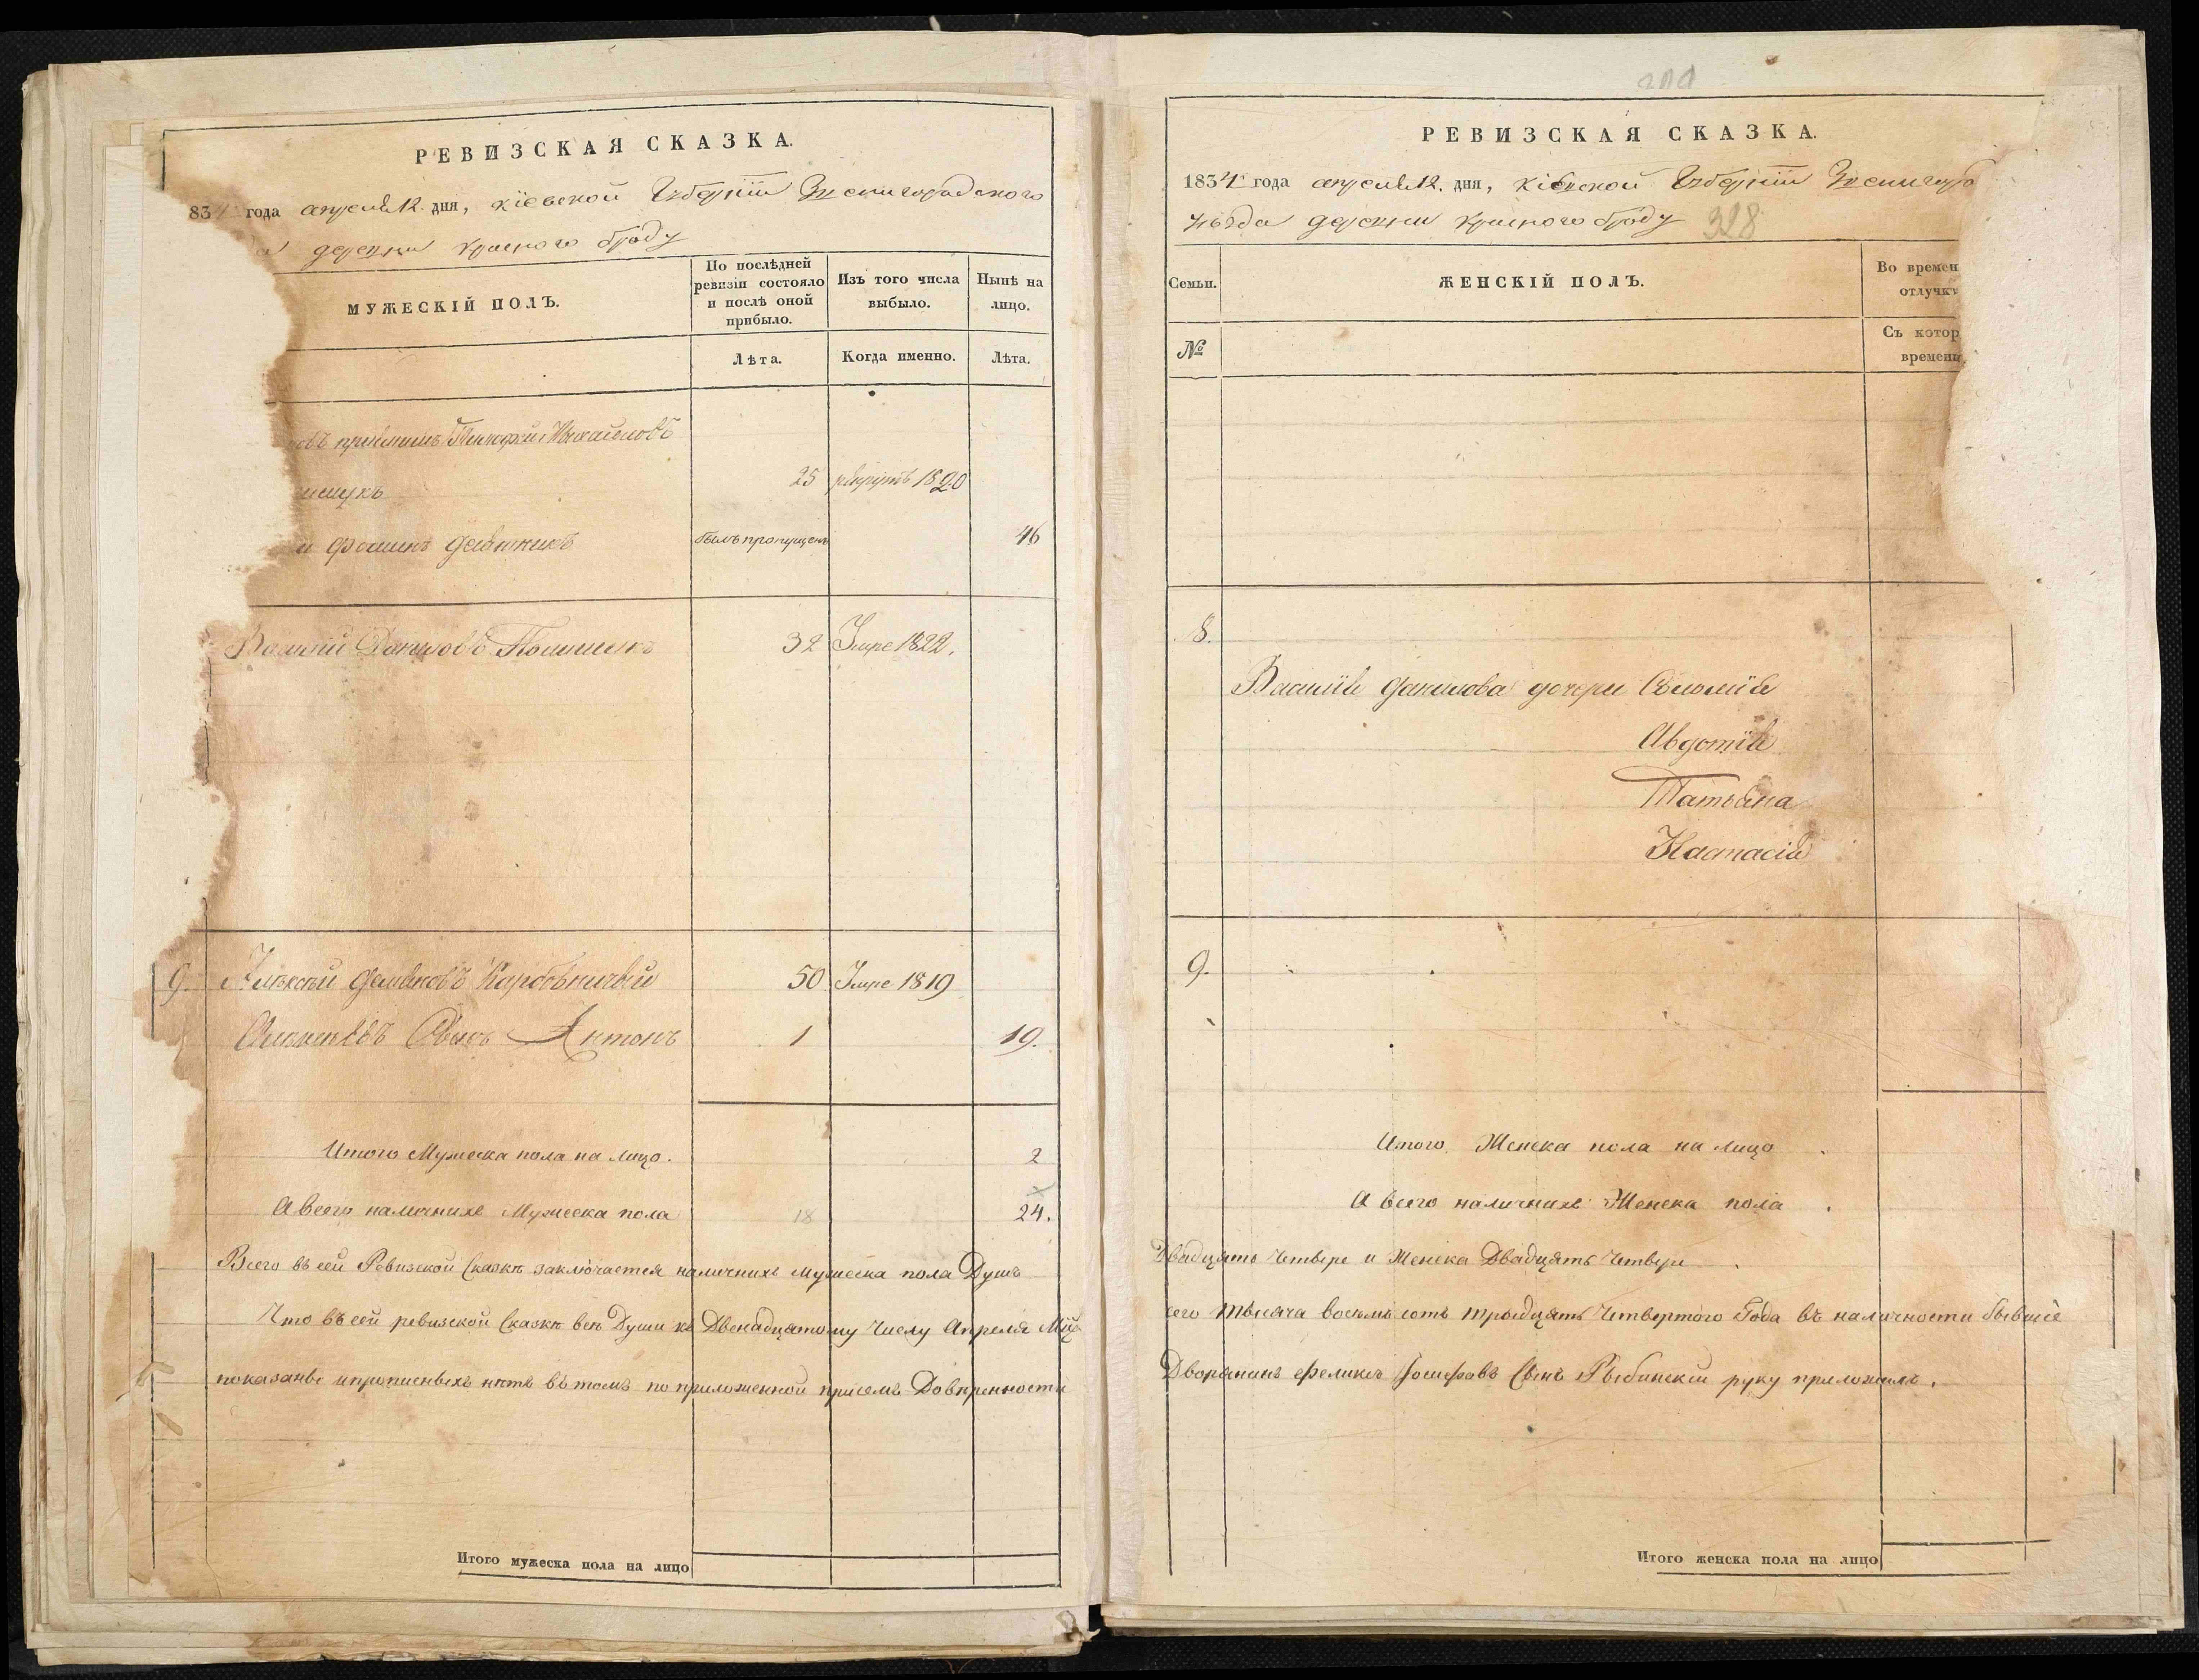 РЕВИЗСКАЯ СКАЗКА.
834 года апреля 12. дня, Кіевской Губерніи Звенигородскаго
деревни Красного броду
МУЖЕСКІЙ ПОЛЪ.
По послѣдней ревизіи состояло и послѣ оной прибыло.
Изъ того числа выбыло.
Нынѣ на лицо.
Лѣта.
Когда именно.
Лѣта.
Михайловъ
25 рекрутъ 1820
былъ пропущенъ 46
Василій Даниловъ 32 Умре 1822.
9. Алексѣй Демяновъ 50 Умре 1819
Алексѣевъ Сынъ Антонъ 1 19.
Итого Мужеска пола на лицо. 2
А всего наличнихъ Мужеска пола 18 24.
Всего въ сей Ревизской Сказкѣ заключается наличнихъ мужеска пола Душъ
Что въ сей ревизской Сказкѣ всѣ Души къ Двенадцятому Числу Апреля Мца
показаные и прописныхъ нѣтъ въ томъ по приложенной присемъ Довѣренности
Итого мужеска пола на лицо
РЕВИЗСКАЯ СКАЗКА.
1834 года апреля 12. дня, Кіевской Губерніи Звенигоро
уѣзда деревни Красного броду 328
Семьи.
ЖЕНСКІЙ ПОЛЪ.
Во времен отлучк
№
Съ котор времени
8.
Василія Данилова дочери Соломія
Авдотія
Татьяна
Настасія
9.
Итого Женска пола на лицо .
А всего наличнихъ Женска пола .
Двадцять Четыре и Женска Двадцять Четыре .
сего тысяча восемь сотъ тридцять Четвертого Года въ наличности бывшіе
Дворянинъ Феликсъ Іосифовъ Сынъ Рыбинскій руку приложилъ.
Итого женска пола на лицо